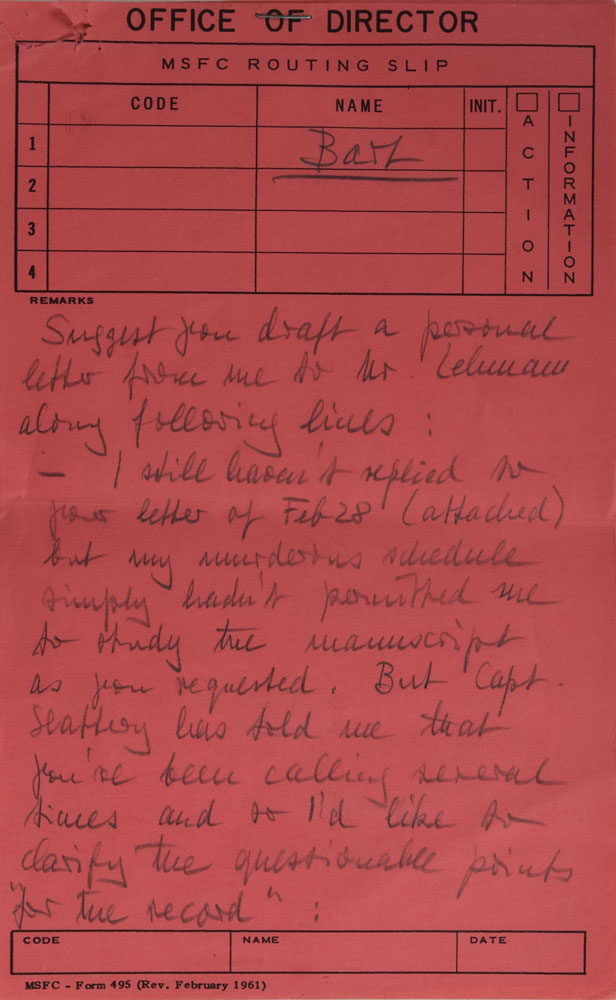 OFFICE OF DIRECTOR
MSFC ROUTING SLIP
CODE NAME INIT. ACTION INFORMATION
1 Bart
2
3
4
REMARKS
Suggest you draft a personal
letter from me to Mr. Lehman
along following lines :
– I still haven't replied to
your letter of Feb 28 (attached)
but my murderous schedule
simply hadn't permitted me
to study the manuscript
as you requested. But Capt.
Slattery has told me that
you've been calling several
times and so I'd like to
clarify the questionable points
"for the record" :
CODE NAME DATE
MSFC - Form 495 (Rev. February 1961)